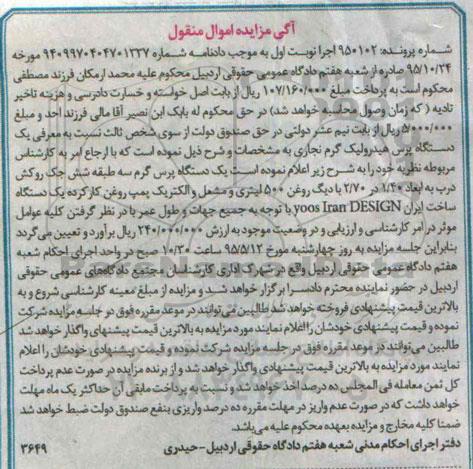 آگی مزایده اموال منقول
شماره پرونده: ۹۵۰۱۰۲ اجرا نوبت اول به موجب دادنامه شماره ۹۴۰۹۹۷۰۴۰۴۷۰۱۳۳۷ مورخه
۹۵/۱۰/۲۴ صادره از شعبه هفتم دادگاه عمومی حقوقی اردبیل محکوم علیه محمد ارمکان فرزند مصطفی
محکوم است به پرداخت مبلغ ۱۰۷/۱۶۰/۰۰۰ ریال از بابت اصل خواسته و خسارت دادرسی و هزینه تاخیر
تادیه (که زمان وصول محاسبه خواهد شد) در حق محکوم له بابک ابن نصیر آقا مالی فرزند احد و مبلغ
۵/۰۰۰/۰۰۰ ریال از بابت نیم عشر دولتی در حق صندوق دولت از سوی شخص ثالث نسبت به معرفی یک
دستگاه پرس هیدرولیک گرم نجاری به مشخصات و شرح ذیل نموده است که با ارجاع امر به کارشناس
مربوطه نظریه خود را به شرح زیر اعلام نموده است یک دستگاه پرس گرم سه طبقه شش جک روکش
درب به ابعاد ۱/۴۰ در ۲/۷۰ با دیگ روغن ۵۰۰ لیتری و مشعل و الکتریک پمپ روغن کارکرده یک دستگاه
ساخت ایران yoos Iran DESIGN با توجه به جمیع جهات و طول عمر با در نظر گرفتن کلیه عوامل
موثر در امر کارشناسی و ارزیابی و در وضعیت موجود به ارزش ۲۴۰/۰۰۰/۰۰۰ ریال برآورد و تعیین می‌گردد
بنابراین جلسه مزایده به روز چهارشنبه مورخ ۹۵/۵/۱۲ ساعت ۱۰/۳۰ صبح در واحد اجرای احکام شعبه
هفتم دادگاه عمومی حقوقی اردبیل واقع در شهرک اداری کارشناسان مجتمع دادگاه‌های عمومی حقوقی
اردبیل در حضور نماینده محترم دادسرا برگزار خواهد شد. و مزایده از مبلغ معینه کارشناسی شروع و به
بالاترین قیمت پیشنهادی فروخته خواهد شد طالبین می‌توانند در موعد مقرره فوق در جلسه مزایده شرکت
نموده و قیمت پیشنهادی خودشان را اعلام نمایند مورد مزایده به بالاترین قیمت پیشنهای واگذار خواهد شد
طالبین می‌توانند در موعد مقرره فوق در جلسه مزایده شرکت نموده و قیمت پیشنهادی خودشان را اعلام
نمایند مورد مزایده به بالاترین قیمت پیشنهادی واگذار خواهد شد و از برنده مزایده در صورت عدم پرداخت
کل ثمن معامله فی المجلس ده درصد اخذ خواهد شد و نسبت به پرداخت مابقی آن حداکثر یک ماه مهلت
خواهد داشت که در صورت عدم واریز در مهلت مقرره ده درصد واریزی بنفع صندوق دولت ضبط خواهد شد
ضمنا کلیه مخارج و مزایده بعهده محکوم علیه می‌باشد.
دفتر اجرای احکام مدنی شعبه هفتم دادگاه حقوقی اردبیل - حیدری ۳۶۴۹